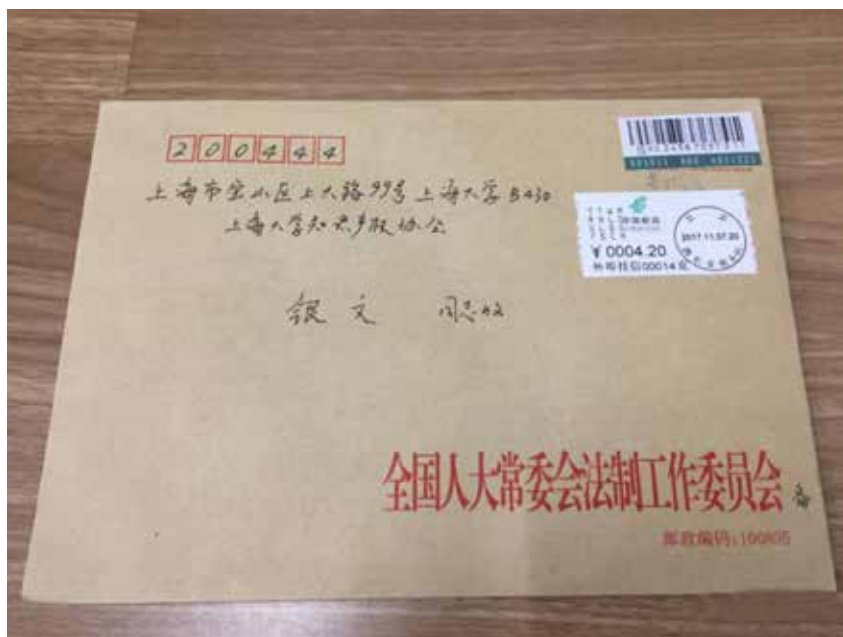 200444
上海市宝山区上大路99号上海大学B430
上海大学知识产权协会
银文 同志收
中国邮政
¥0004.20
2017.11.07.20
全国人大常委会法制工作委员会
邮政编码:100805